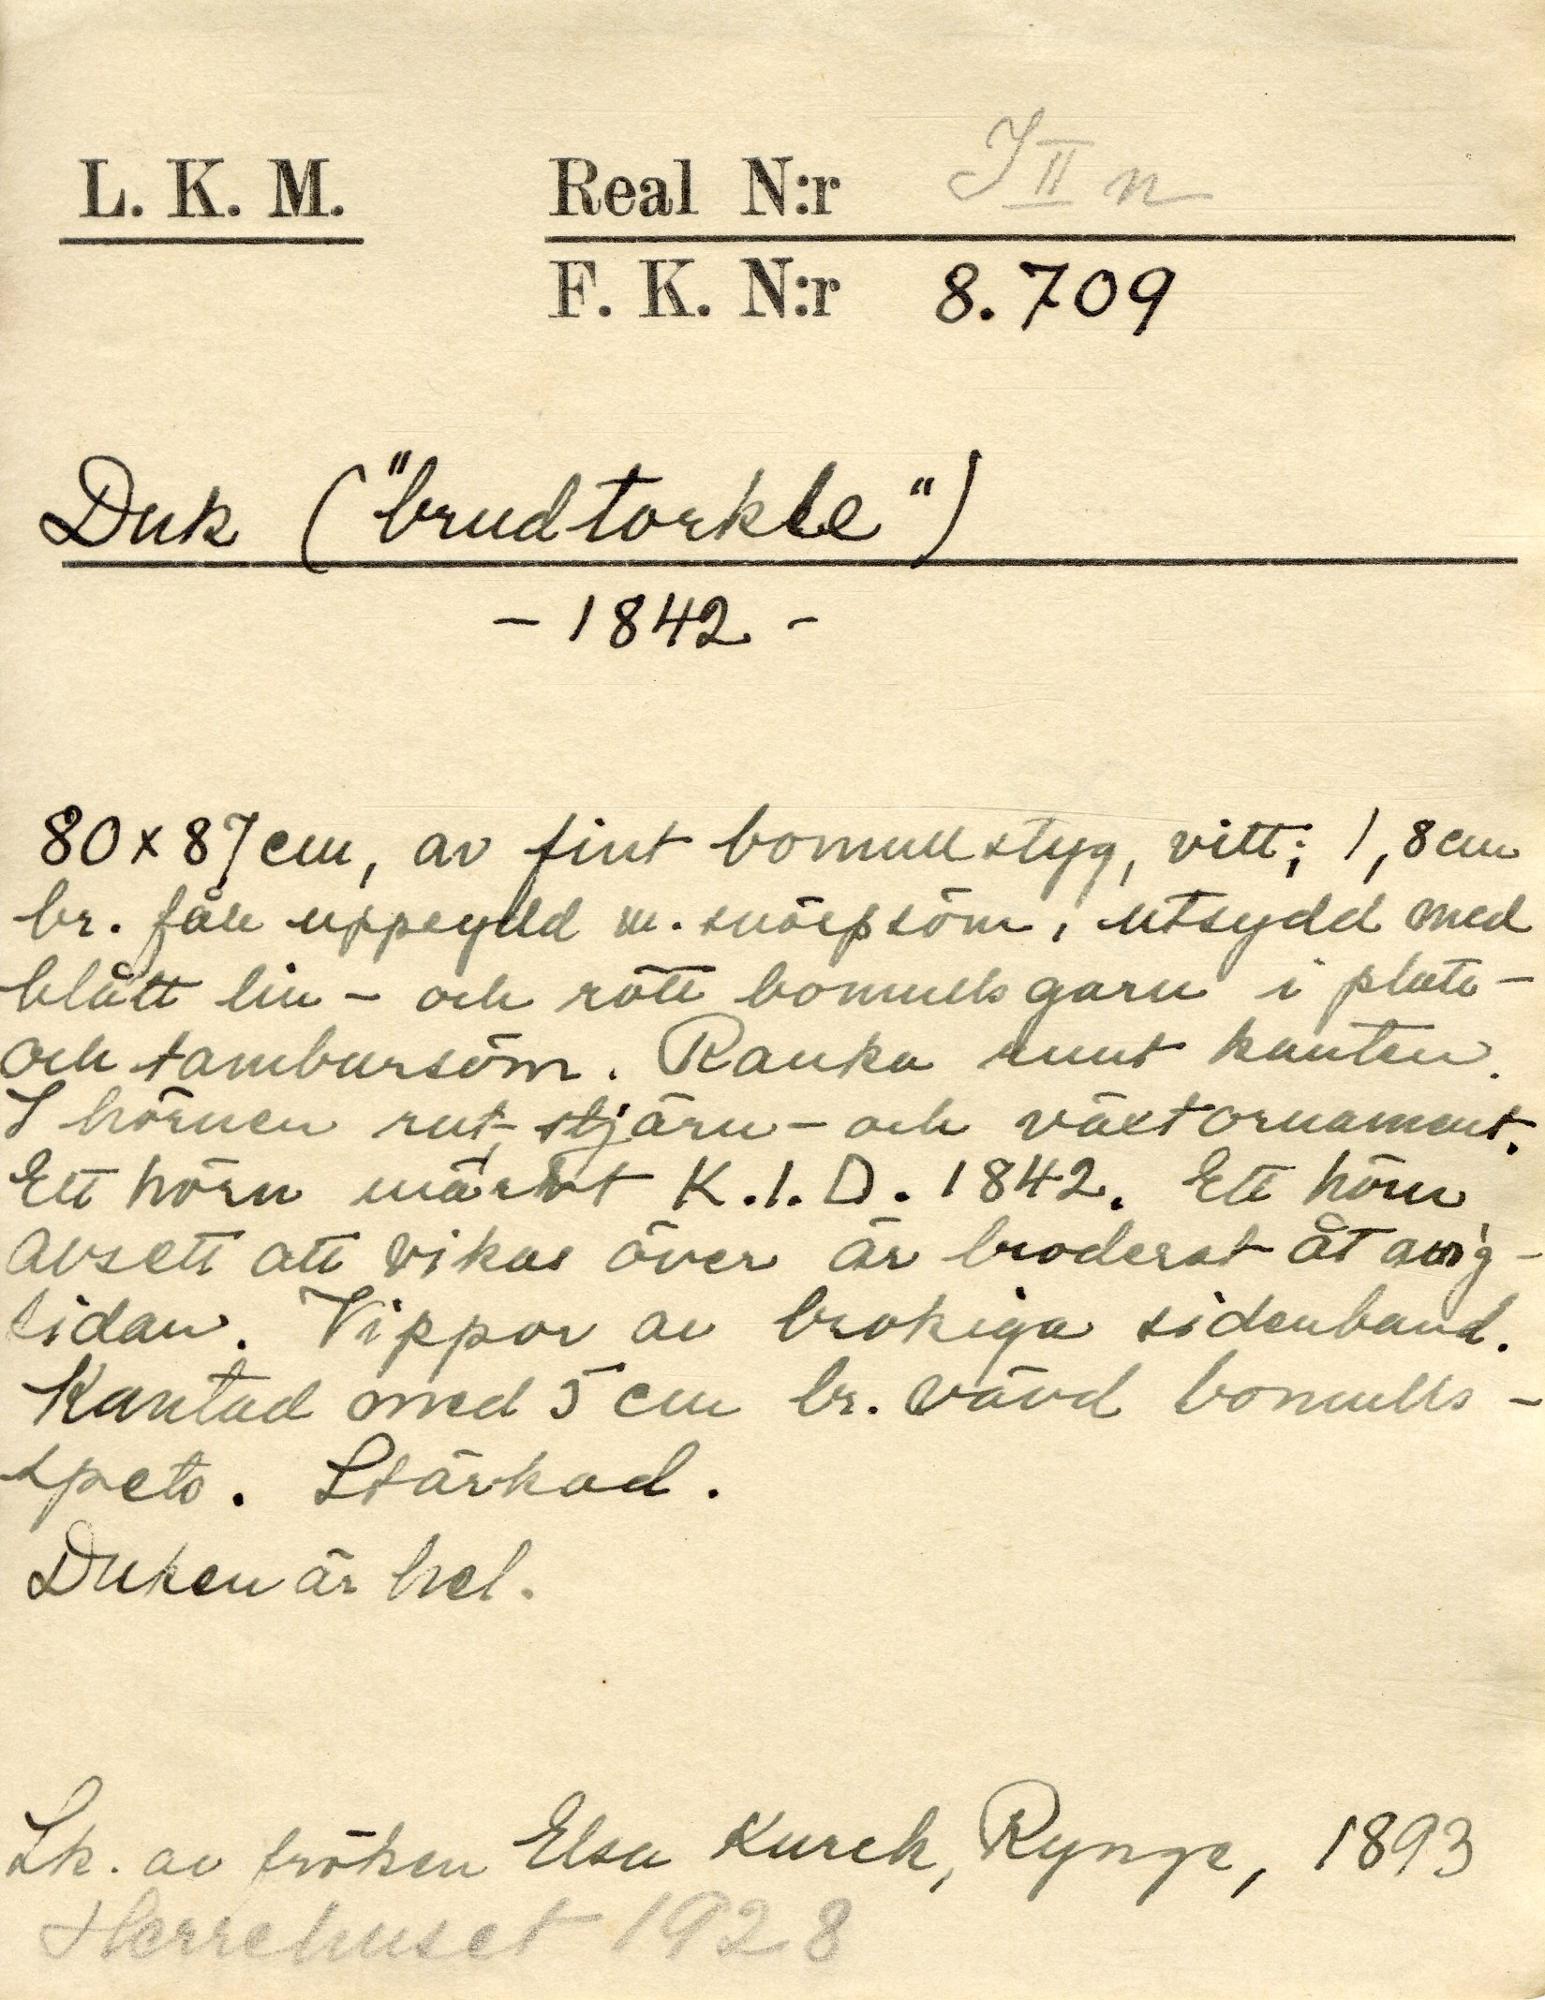 L. K. M. Real N:r J II n
F. K. N:r 8.709
Duk ("brudtorkle")
- 1842 -
80 x 87 cm, av fint bomullstyg, vitt; 1,8 cm
br. fåll uppsydd m. snörpsöm, utsydd med
blått lin- och rött bomullsgarn i platt-
och tambursöm. Ranka runt kanten.
I hörnen rut-, stjärn- och växtornament.
Ett hörn märkt K.I.D. 1842. Ett hörn
avsett att vikas över är broderat åt avig-
sidan. Vippor av brokiga sidenband.
Kantad med 5 cm br. vävd bomulls-
spets. Stärkad.
Duken är hel.
Sk. av fröken Elsa Kurck, Rynge, 1893
Herrehuset 1928